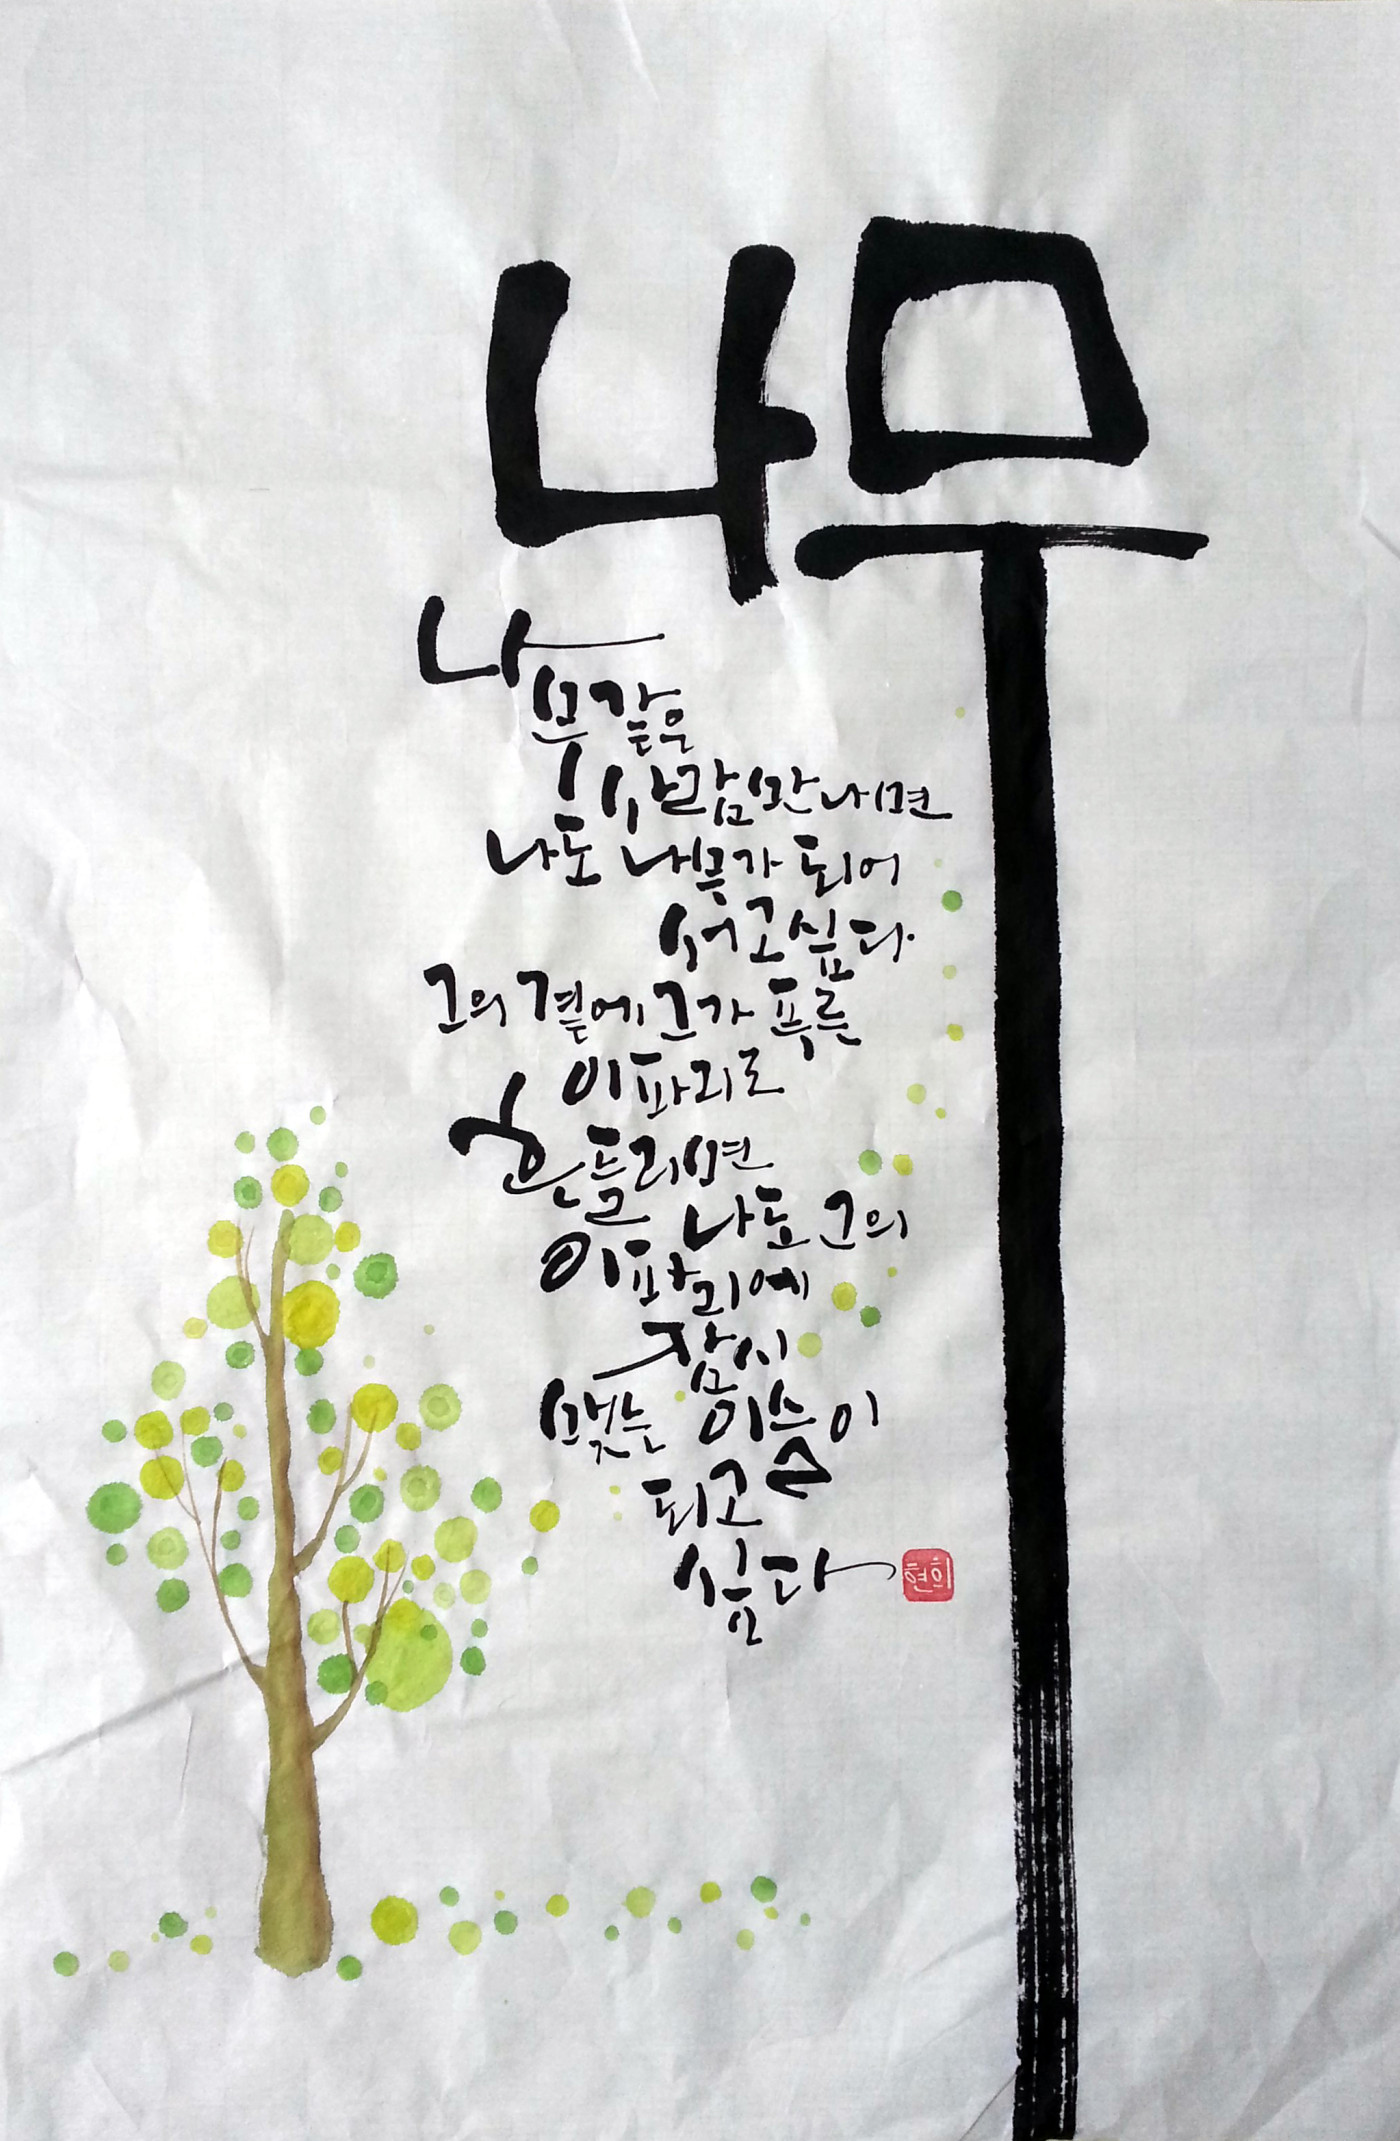 나무
나
무같은
사람만나면
나도 나무가 되어
서고싶다
그의 곁에 그가 푸른
이파리로
흔들리면
나도 그의
이파리에
잠시
맺는 이슬이
되고
싶다
현희